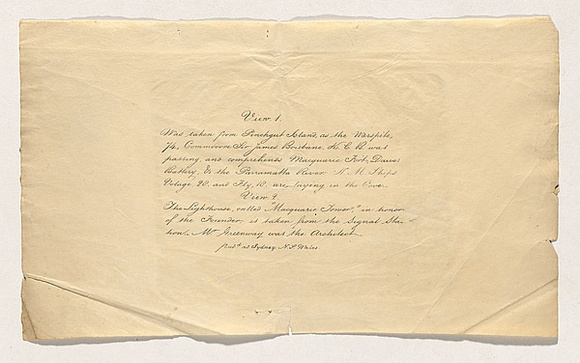 View 1.
Was taken from Pinchgut Island, as the Warspite,
74, Commodore Sir James Brisbane, K. C. B. was
passing, and comprehends Macquarie Fort, Dawes
Battery, & the Parramatta River. H. M. Ships
Volage 28, and Fly, 18, are laying in the Cove.
View 2.
The Lighthouse, called "Macquarie Tower," in honor
of the Founder, is taken from the Signal Sta-
tion. Mr. Greenway was the Architect.
at Sydney N. S. Wales